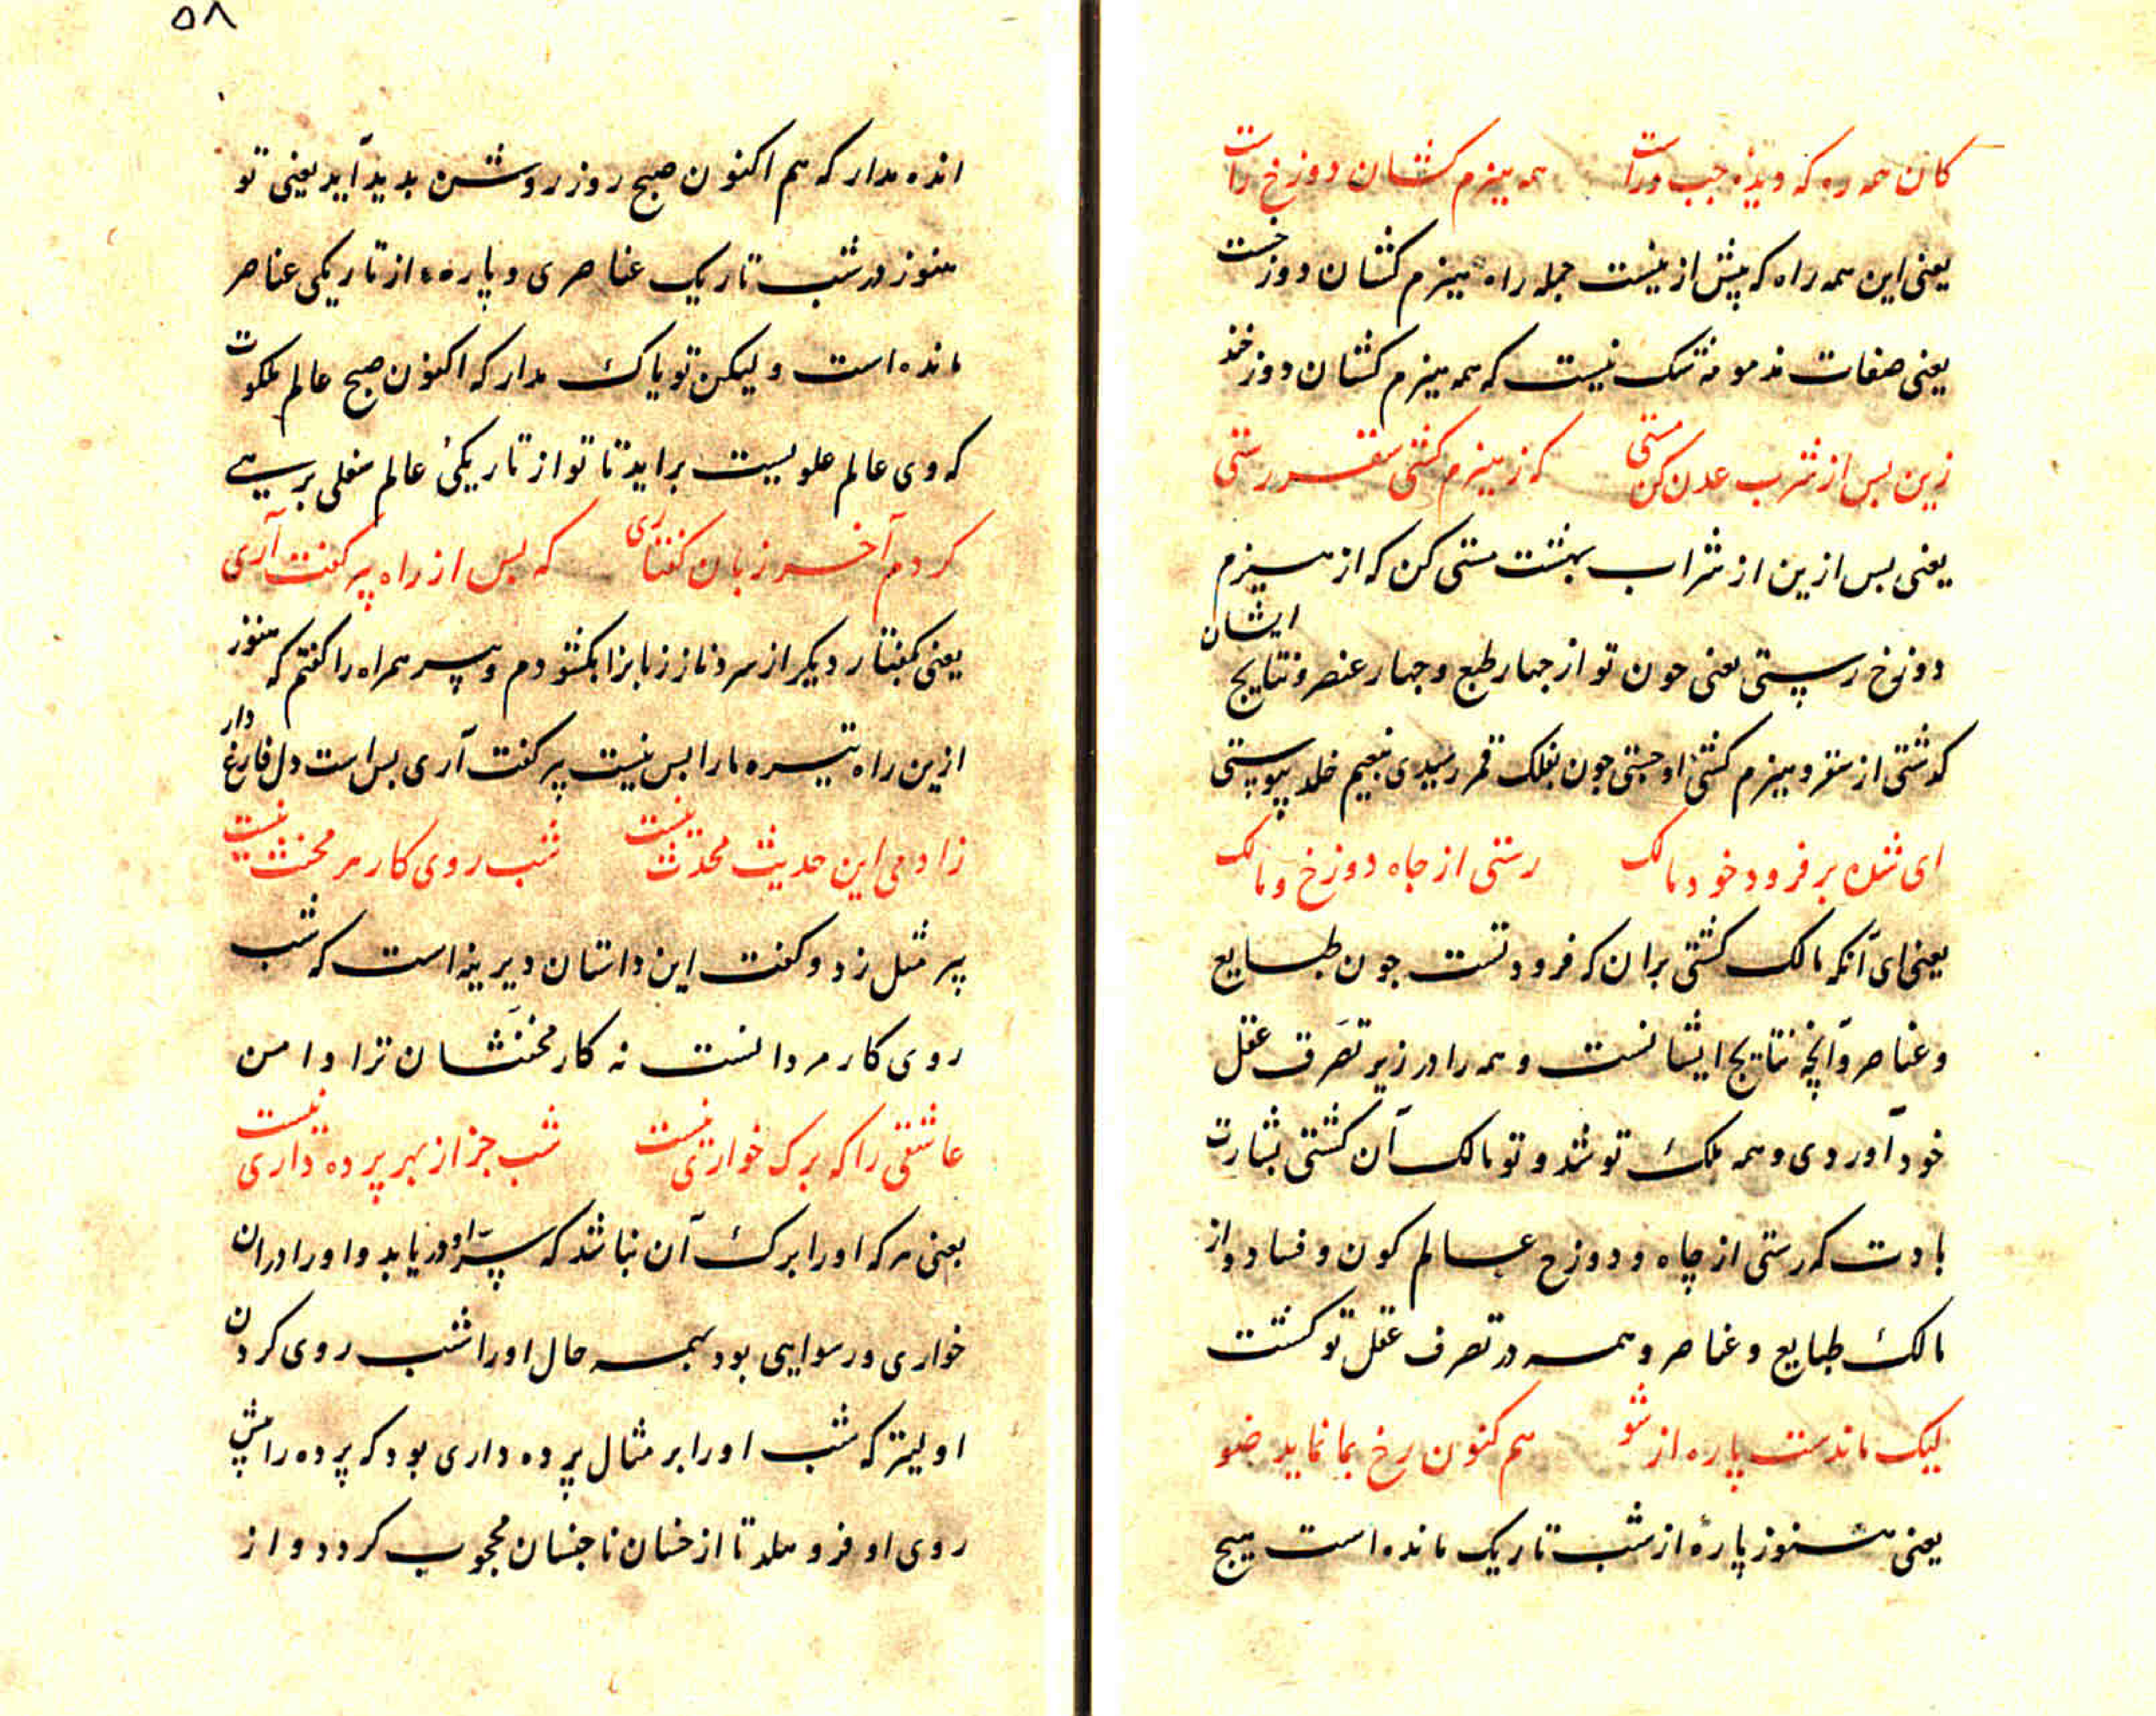 کان همه ره که دیده چپ و راست همه هیزم کشان دوزخ راست
یعنی این همه راه که پیش ازینست جمله راه هیزم کشان دوزخست
یعنی صفات مذمومه شک نیست که همه هیزم کشان دوزخند
زین پس از شرب عدن کن مستی که ز هیزم کشی سقر رستی
یعنی پس ازین از شراب بهشت مستی کن که از هیزم
دوزخ رستی یعنی چون تو از چهار طبع و چهار عنصر و نتایج ایشان
گذشتی از سقر و هیزم کشی او جستی چون بفلک قمر رسیدی بنعیم خلد پیوستی
ای شده بر فرود خود مالک رستی از چاه دوزخ و مالک
یعنی ای آنکه مالک گشتی بران که فرود تست چون طبایع
و عناصر و آنچه نتایج ایشانست و همه را در زیر تصرف عقل
خود آوردی و همه ملک تو شد و تو مالک آن گشتی بشارت
بادت که رستی از چاه و دوزخ عالم کون و فساد و از
مالک طبایع و عناصر و همه در تصرف عقل تو گشت
لیک ماندست پاره از شو هم کنون رخ بما نماید ضو
یعنی هنوز پارهٔ از شب تاریک مانده است هیچ
۵۸
انده مدار که هم اکنون صبح روز روشن پدید آید یعنی تو
هنوز در شب تاریک عناصری و پاره از تاریکی عناصر
مانده است ولیکن تو باک مدار که اکنون صبح عالم ملکوت
که وی عالم علویست براید تا تو از تاریکی عالم سفلی برهی
کردم آخر زبان گفتاری که بس از راه پیر گفت آری
یعنی بگفتار دیگر از سر نیاز زبانرا بگشودم و پیر همراه را گفتم که هنوز
ازین راه تیره ما را بس نیست پیر گفت آری بس است دل فارغ دار
زادمی این حدیث محدث نیست شب روی کار هر مخنث نیست
پیر مثل زد و گفت این داستان دیرینه است که شب
روی کار مردانست نه کار مخنثان ترا دامن
عاشقی را که برگ خواری نیست شب جز از بهر پرده داری نیست
یعنی هر که او را برگ آن نباشد که سرّ او دریابد و او را دران
خواری و رسوایی بود بهمه حال او را شب روی کردن
اولیتر که شب او را بر مثال پرده داری بود که پرده را پیش
روی او فرو هلد تا از خسان ناجنسان محجوب گردد و از